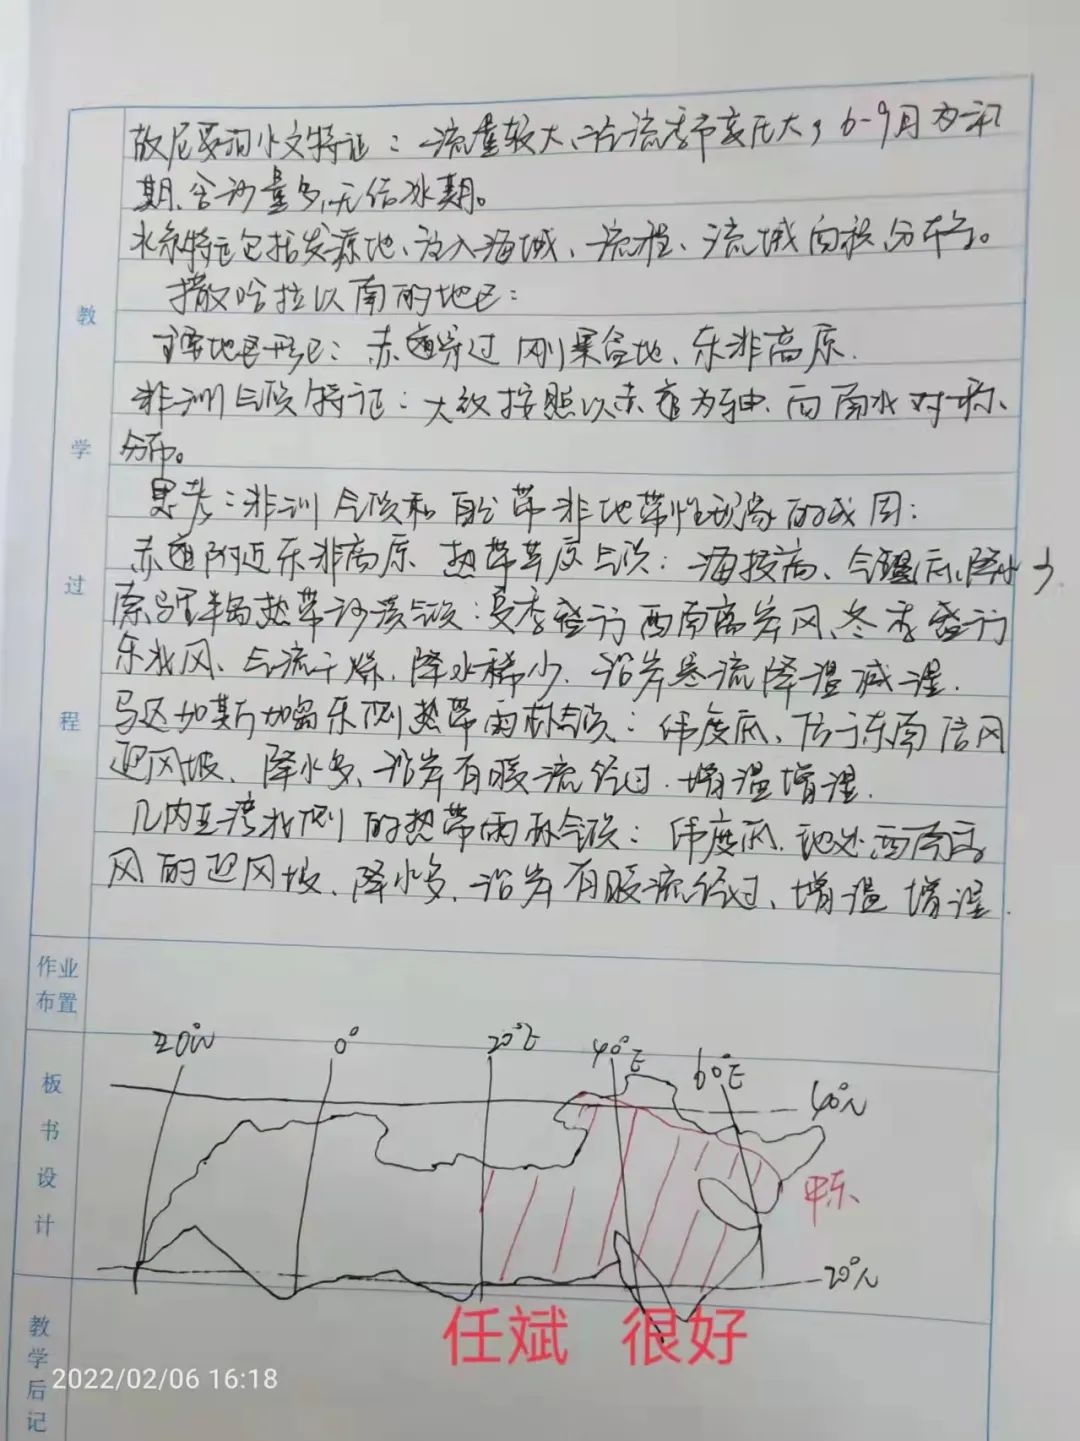 故尼罗河水文特征：流量较大、径流季节变化大，6-9月为汛
期、含沙量多，无结冰期。
水系特征包括发源地、注入海域、流程、流域面积、分布等。
撒哈拉以南的地区：
主要地形区：赤道穿过 刚果盆地、东非高原.
非洲气候特征：大致按照以赤道为轴 向南北对称
分布。
思考：非洲气候和自然带非地带性现象的成因：
赤道附近东非高原 热带草原气候：海拔高、气温低、降水少
索马里半岛热带沙漠气候：夏季盛行西南离岸风、冬季盛行
东北风、气流干燥，降水稀少. 沿岸寒流降温减湿.
马达加斯加岛东侧热带雨林气候：纬度低、位于东南信风
迎风坡、降水多、沿岸有暖流经过. 增温增湿.
几内亚湾北侧的热带雨林气候：纬度低. 地处西南季
风的迎风坡、降水多、沿岸有暖流经过、增温增湿.
教
学
过
程
作业
布置
板
书
设
计
20°W 0° 20°E 40°E 60°E
40°N
中东
20°N
任斌 很好
教
学
后
记
2022/02/06 16:18